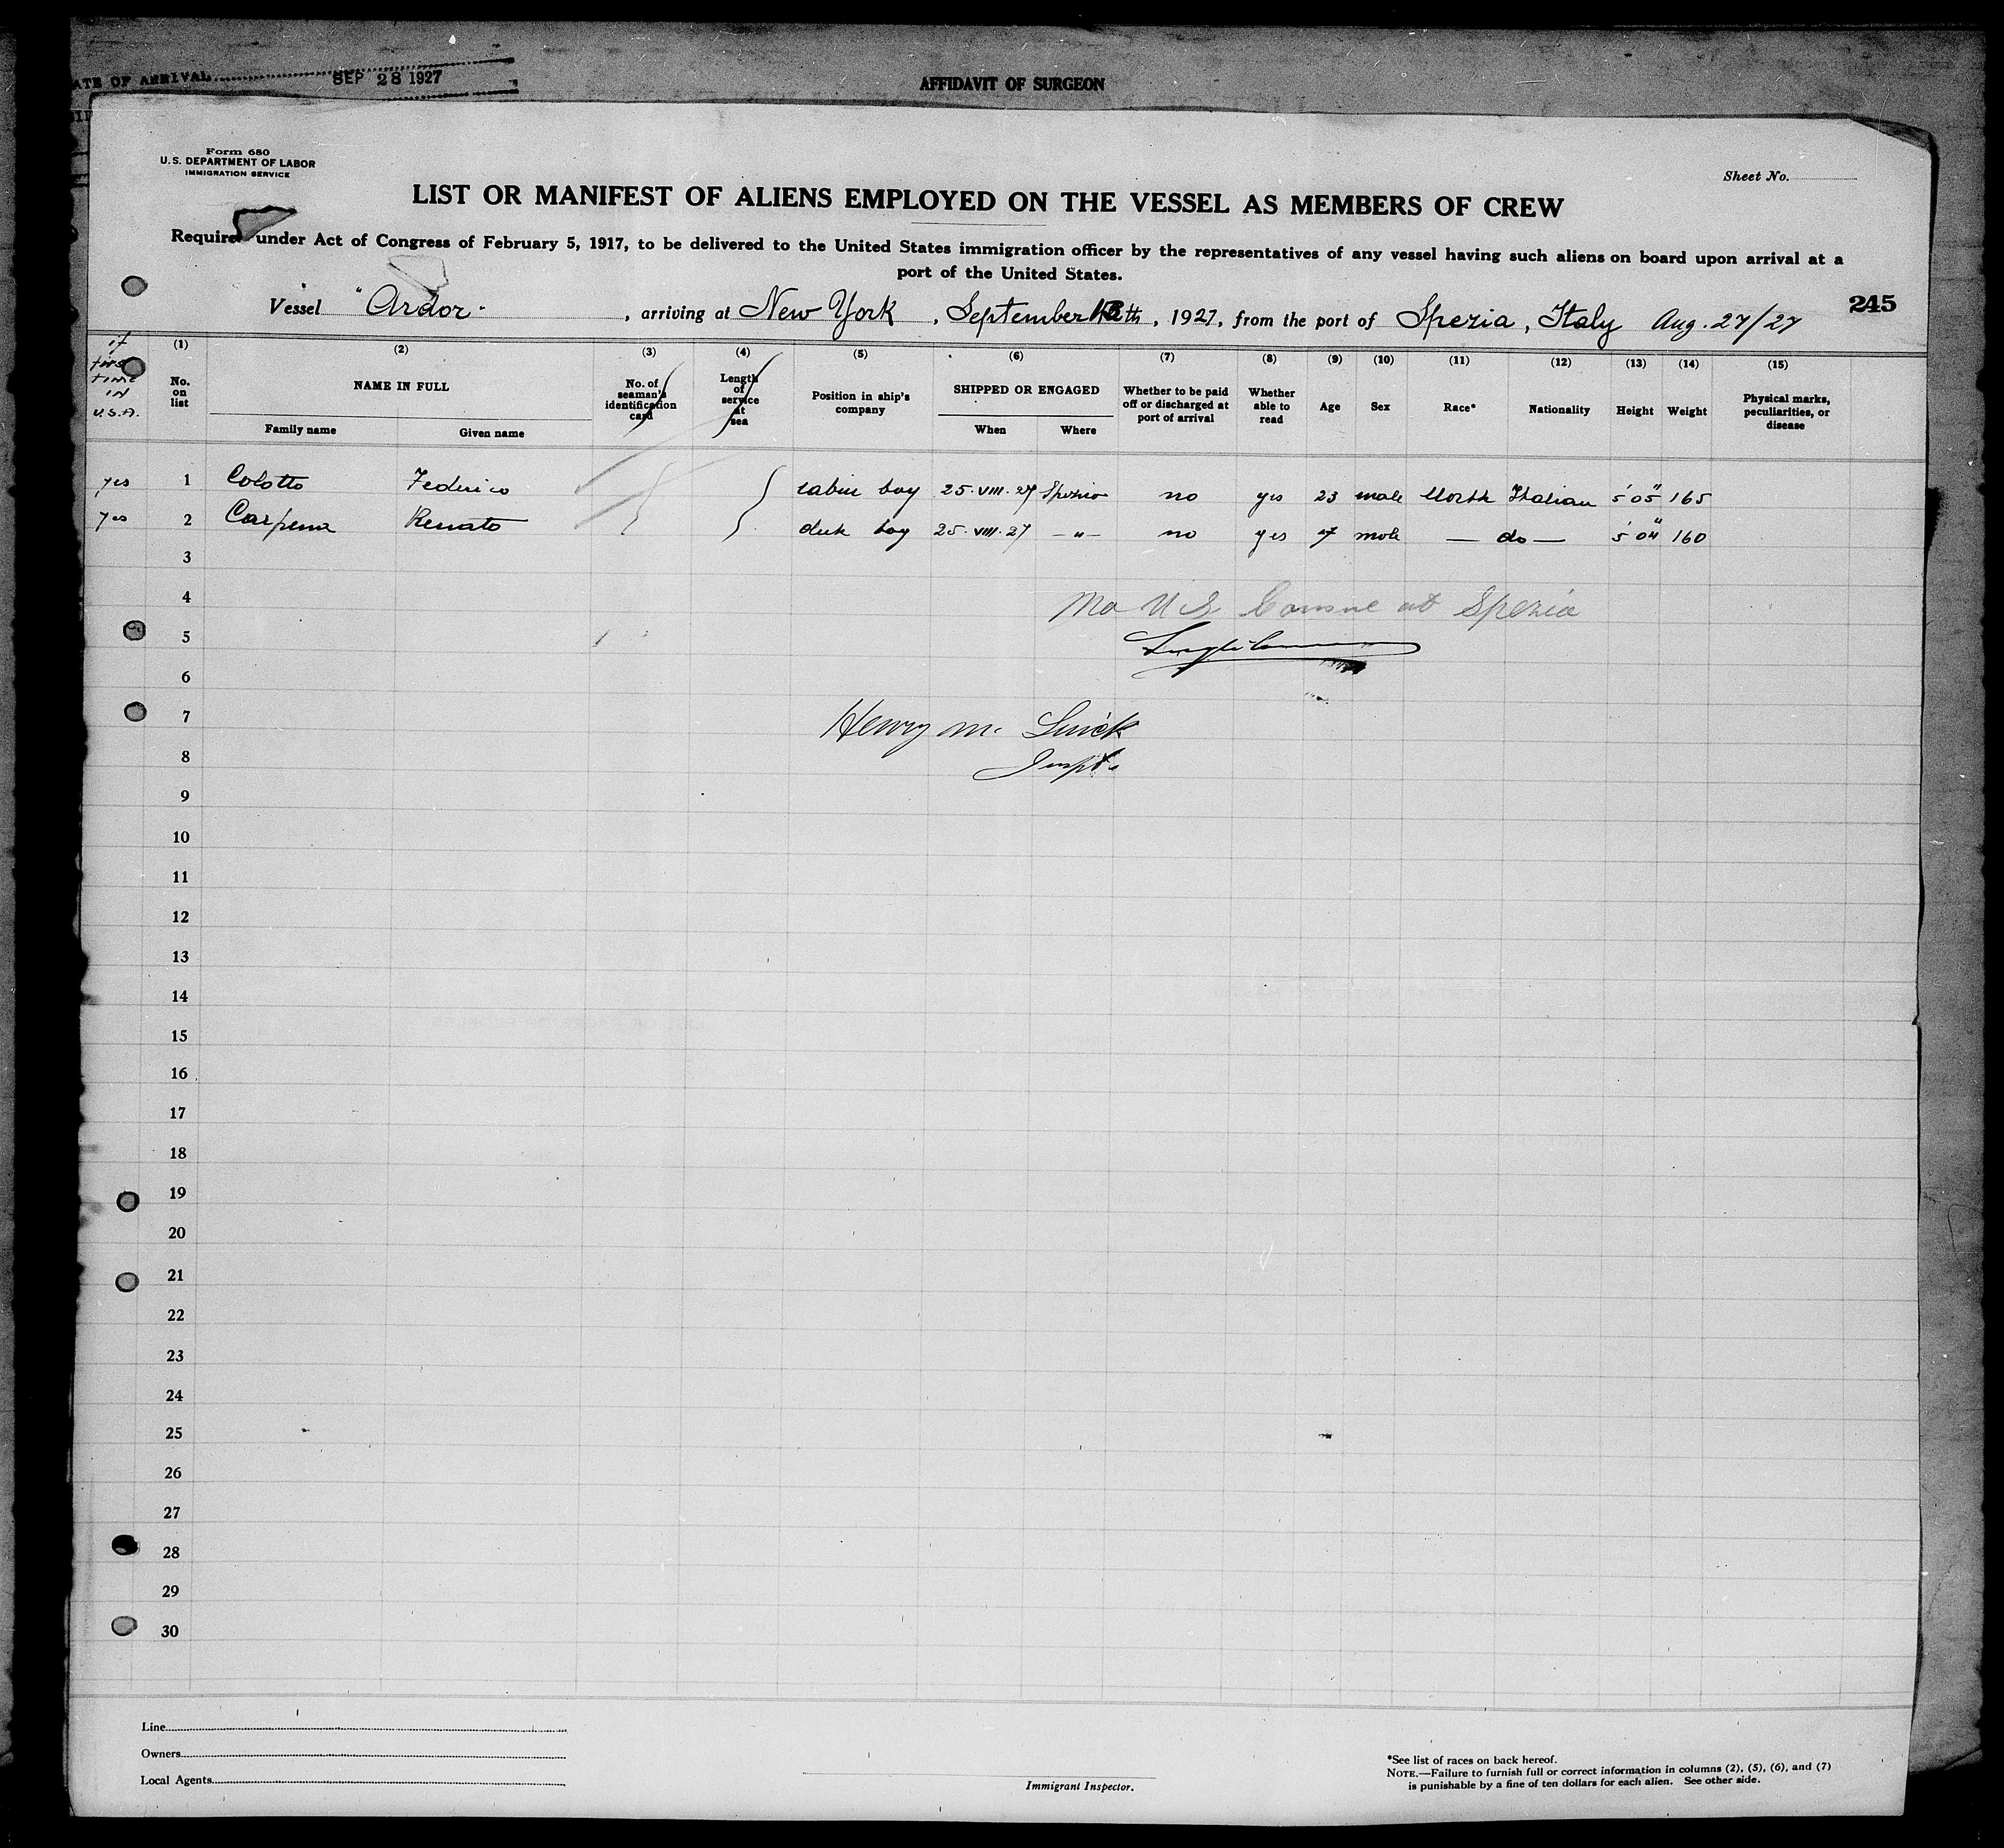 ATE OF ARRIVAL SEP 28 1927
AFFIDAVIT OF SURGEON
Form 680
U.S. DEPARTMENT OF LABOR
IMMIGRATION SERVICE
Sheet No.
LIST OR MANIFEST OF ALIENS EMPLOYED ON THE VESSEL AS MEMBERS OF CREW
Required under Act of Congress of February 5, 1917, to be delivered to the United States immigration officer by the representatives of any vessel having such aliens on board upon arrival at a
port of the United States.
245
Vessel "Ardor", arriving at New York, September th, 1927, from the port of Spezia, Italy Aug. 27/27
if first time in U.S.A.
(1) (2) (3) (4) (5) (6) (7) (8) (9) (10) (11) (12) (13) (14) (15)
No. on list
NAME IN FULL
Family name Given name
No. of seaman's identification card
Length of service at sea
Position in ship's company
SHIPPED OR ENGAGED
When Where
Whether to be paid off or discharged at port of arrival
Whether able to read
Age Sex Race* Nationality Height Weight
Physical marks, peculiarities, or disease
yes 1 Colotto Federico cabin boy 25·VIII·27 Spezia no yes 23 male North Italian 5'05" 165
yes 2 Carpena Renato deck boy 25·VIII·27 —"— no yes male — do — 5'04" 160
3
4 No U S Consul at Spezia
5
6
7 Henry M.
8 Inspt.
9
10
11
12
13
14
15
16
17
18
19
20
21
22
23
24
25
26
27
28
29
30
Line
Owners
Local Agents
Immigrant Inspector.
*See list of races on back hereof.
NOTE.—Failure to furnish full or correct information in columns (2), (5), (6), and (7)
is punishable by a fine of ten dollars for each alien. See other side.